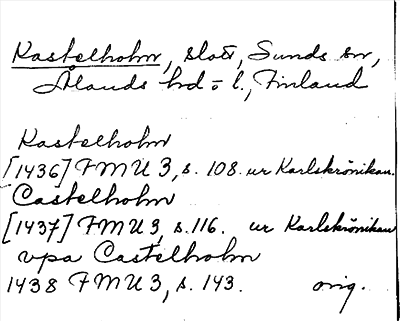 Kastelholm, slott, Sunds sn,
Ålands hd o l., Finland
Kastelholm
[1436] FMU 3, s. 108. ur Karlskrönikan.
Castelholm
[1437] FMU 3, s. 116. ur Karlskrönikan
vpa Castelholm
1438 FMU 3, s. 143. orig.